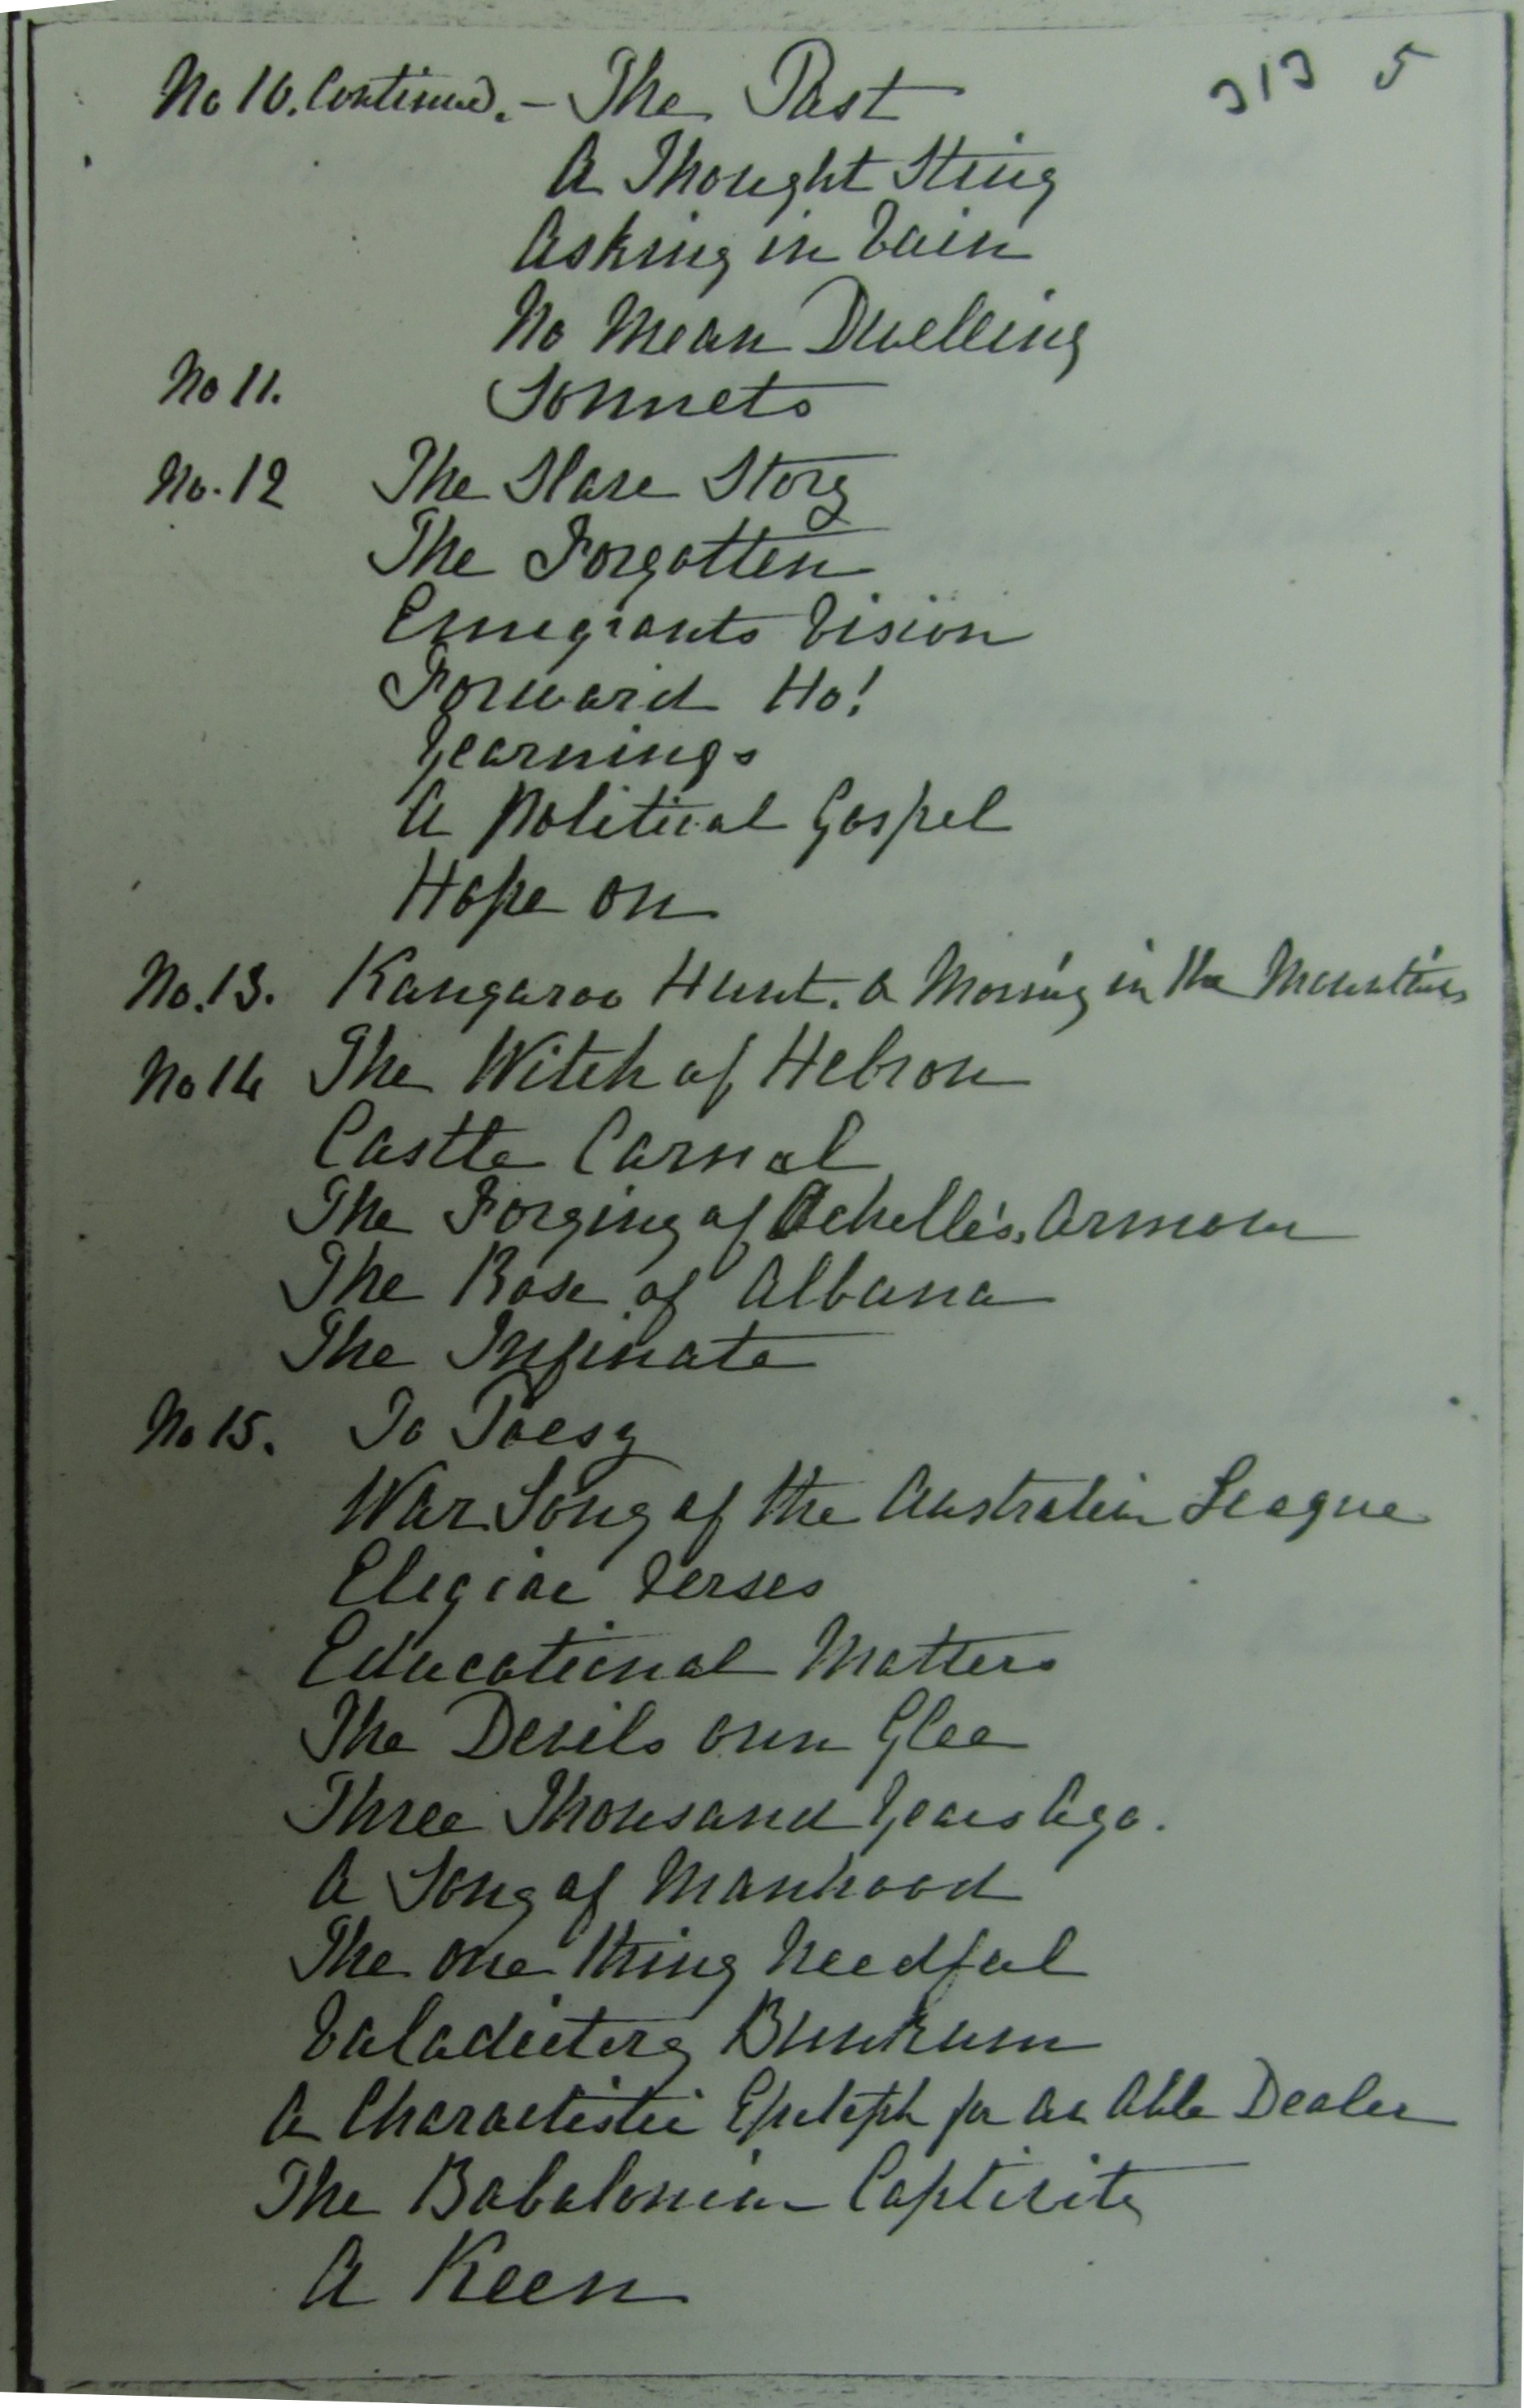 No 10. Continued. - The Past
313 5
A Thought String
Asking in Vain
No Mean Dwelling
No 11. Sonnets
No. 12 The Slave Story
The Forgotten
Emegrants Vision
Forward Ho!
Yearnings
A Political Gospel
Hope on
No. 13. Kangaroo Hunt. A Morning in the Mountains
No 14 The Witch of Hebron
Castle Carnal
The Forging of Achelle's, Armour
The Rose of Albana
The Infinate
No 15. To Poesy
War Song of the Australian League
Elegiac Verses
Educational Matters
The Devils own Glee
Three Thousand Years Ago.
A Song of Manhood
The one thing Needful
Valadictory Bunkum
A Charactistic Epetaph for an Able Dealer
The Babalonian Captivity
A Keen